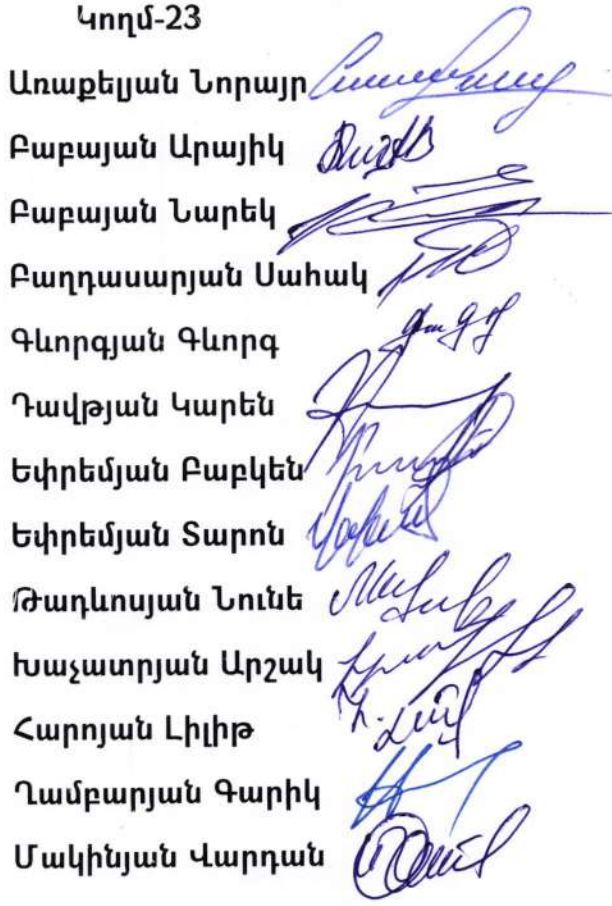 Կողմ-23
Առաքելյան Նորայր
Բաբայան Արայիկ
Բաբայան Նարեկ
Բաղդասարյան Սահակ
Գևորգյան Գևորգ
Դավթյան Կարեն
Եփրեմյան Բաբկեն
Եփրեմյան Տարոն
Թադևոսյան Նունե
Խաչատրյան Արշակ
Հարոյան Լիլիթ
Ղամբարյան Գարիկ
Մակինյան Վարդան